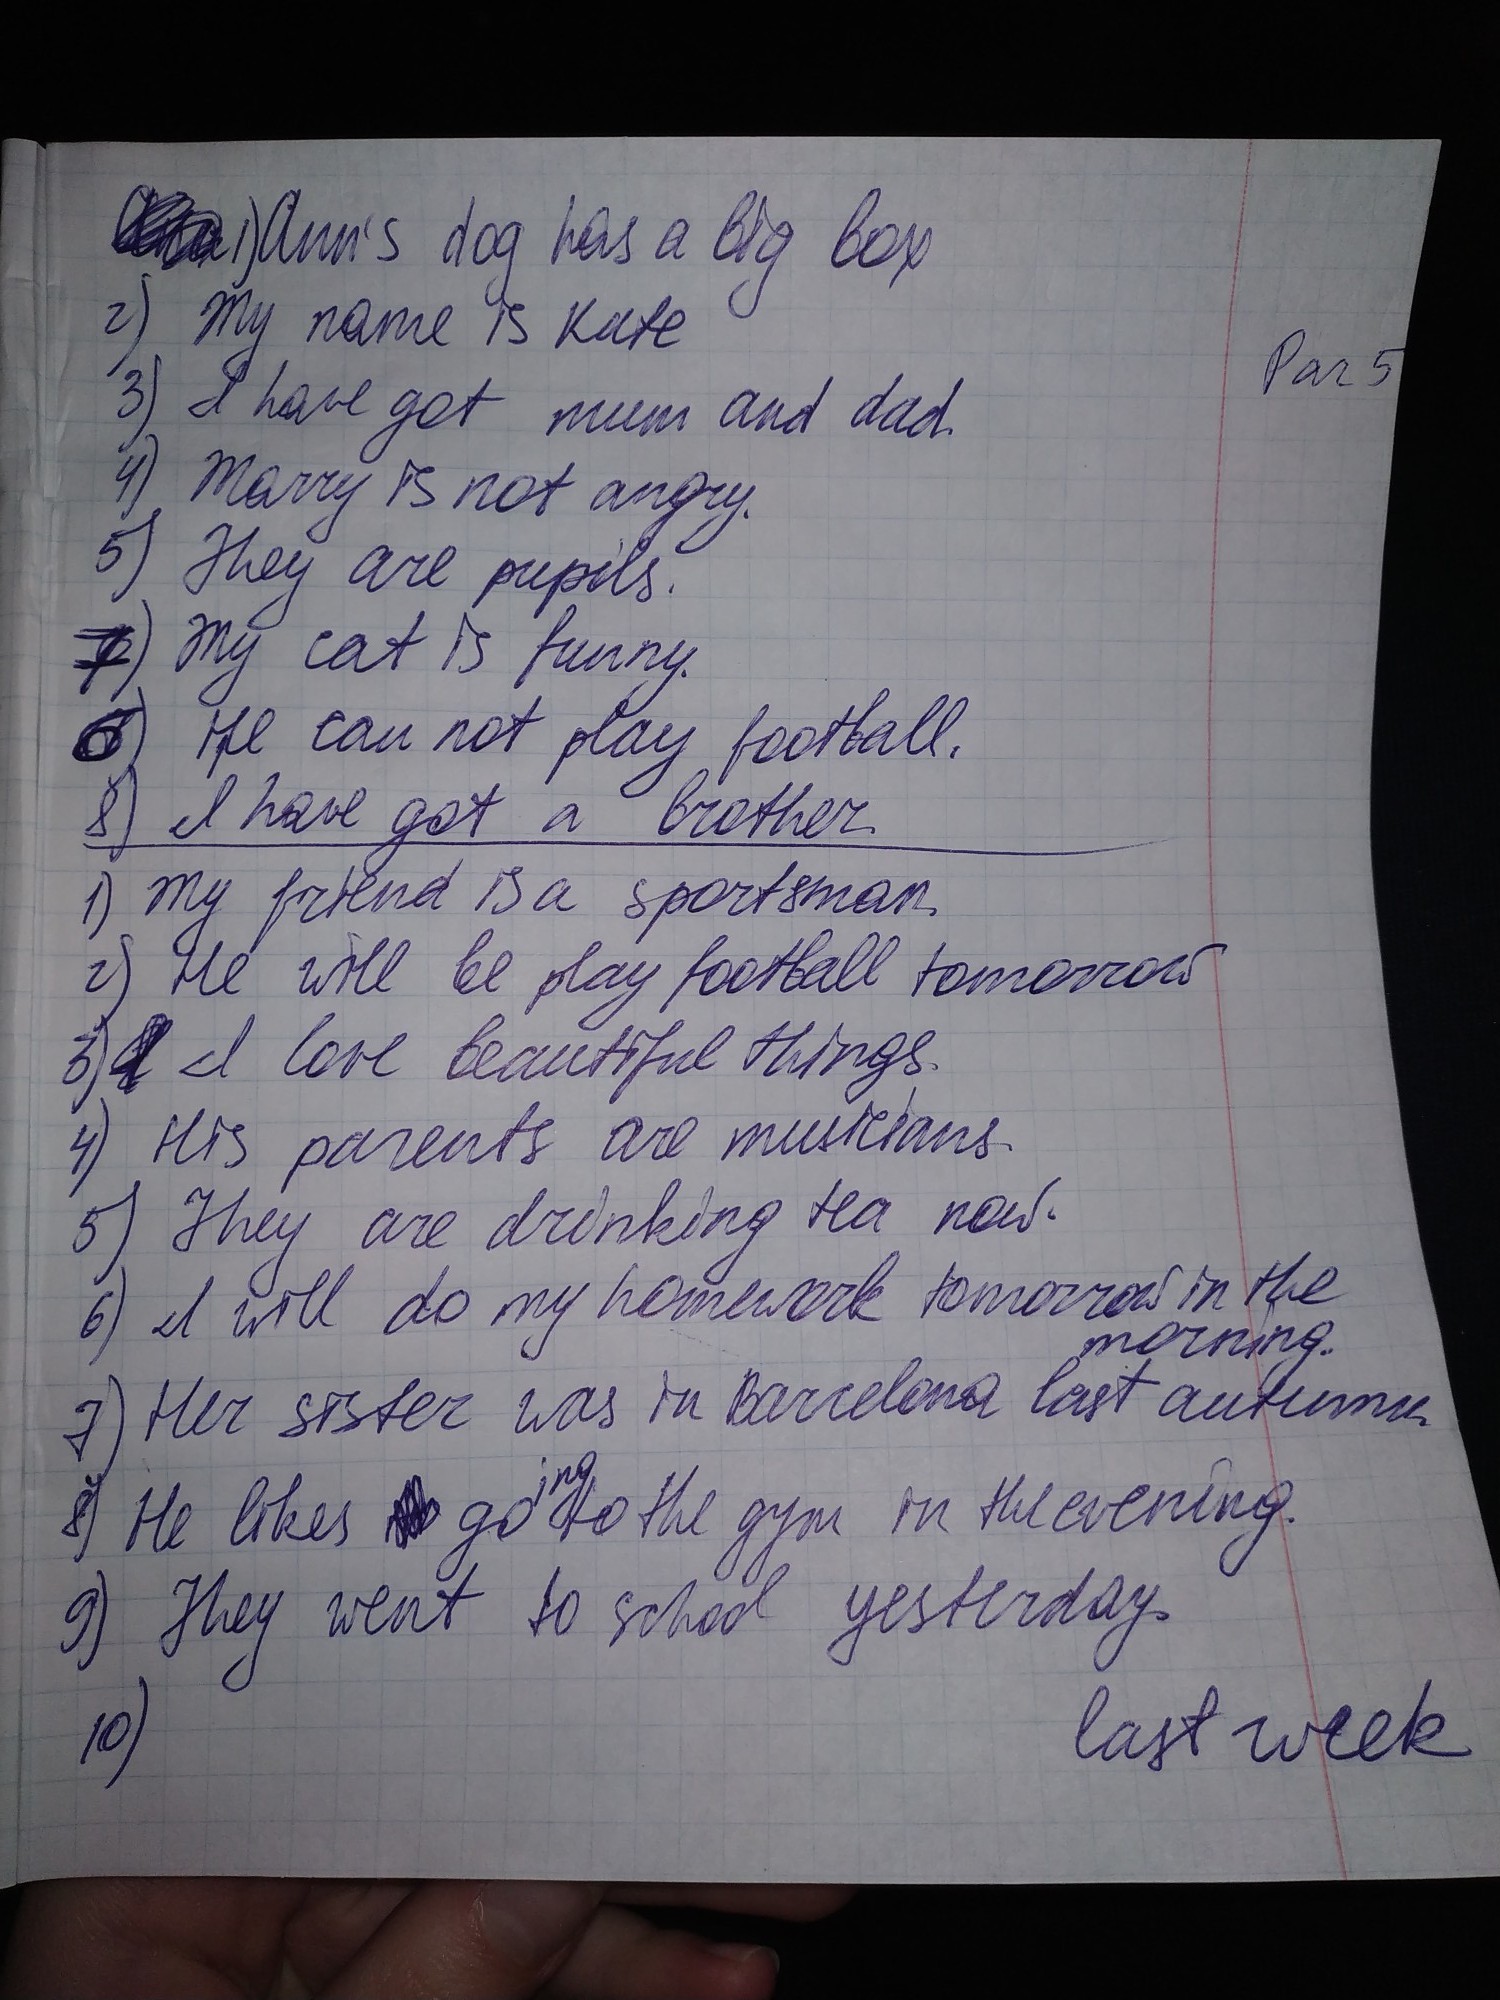 1) Ann's dog has a big box
2) My name is Kate
Par 5
3) I have got mum and dad.
4) Marry is not angry.
5) They are pupils.
7) My cat is funny.
6) He can not play football.
8) I have got a brother.
1) My friend is a sportsman.
2) He will be play football tomorrow
3) I love beautiful things.
4) His parents are musicians.
5) They are drinking tea now.
6) I will do my homework tomorrow in the
morning.
7) Her sister was in Barcelona last autumn.
8) He likes going to the gym in the evening.
9) They went to school yesterday.
10) last week